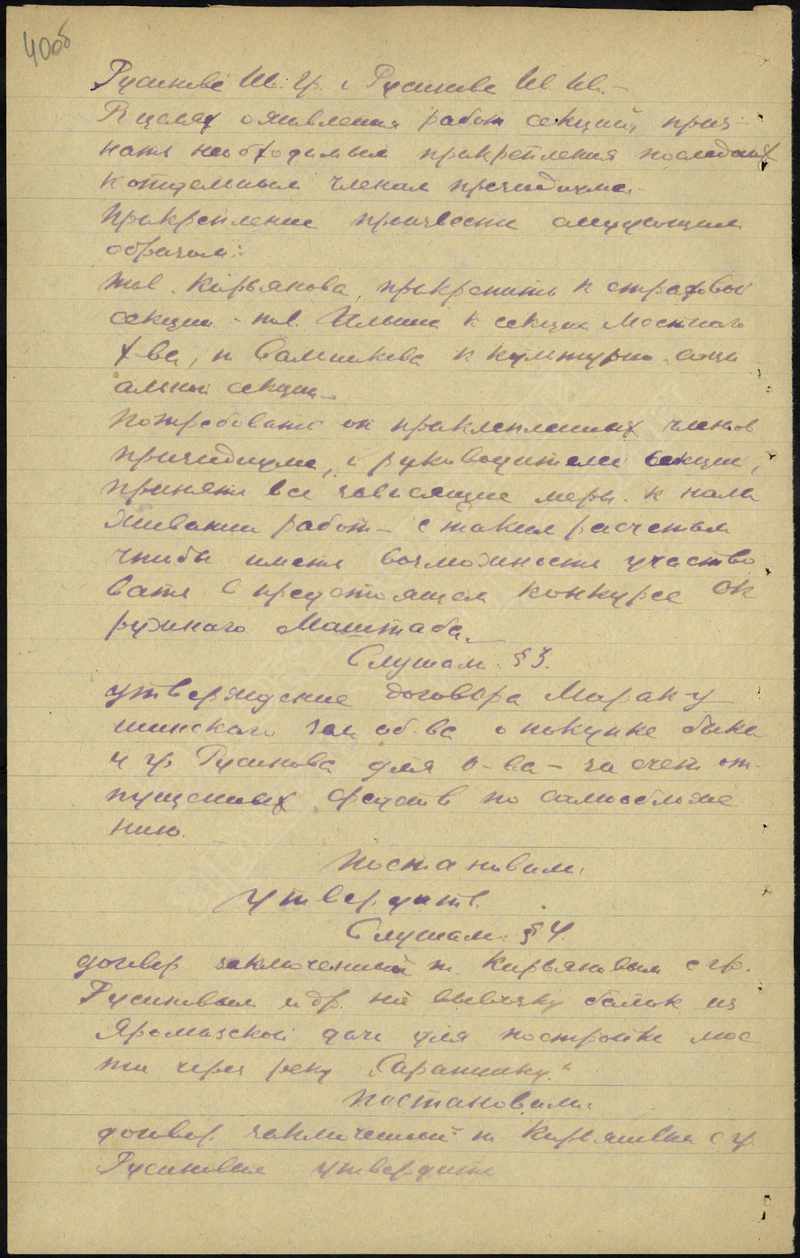 40об
Русинове Ив. Гр. и Русинове Ив. Ив. –
В целях оживления работ секций приз
нать необходимым прикрепления последних
к отдельным членам президиума.
Прикрепление произвести следующим
образом:
тов. Кирьянова, прикрепить к страховой
секции – тов. Ильина к секции Местного
х-ва, и Сальникова к культурно-соци
альной секции.
Потребовать от прикрепленных членов
президиума, и руководителей секции,
принять все зависящие меры к нала
живании работ – с таким расчетом
чтобы иметь возможность участво
вать в предстоящем конкурсе Ок
ружного Маштаба.
Слушали § 3.
утверждение договора
шинского зем об-ва о покупке быка
у гр. Русинова для о-ва – за счет от
пущенных средств по самообложе
нию.
Постановили:
Утвердить.
Слушали § 4.
договор заключенный т. Кирьяновым с гр.
Русиновым и др. на вывозку балок из
дачи для постройки мос
та через реку
Постановили:
договор заключенный т. Кирьяновым с гр.
Русиновым утвердить